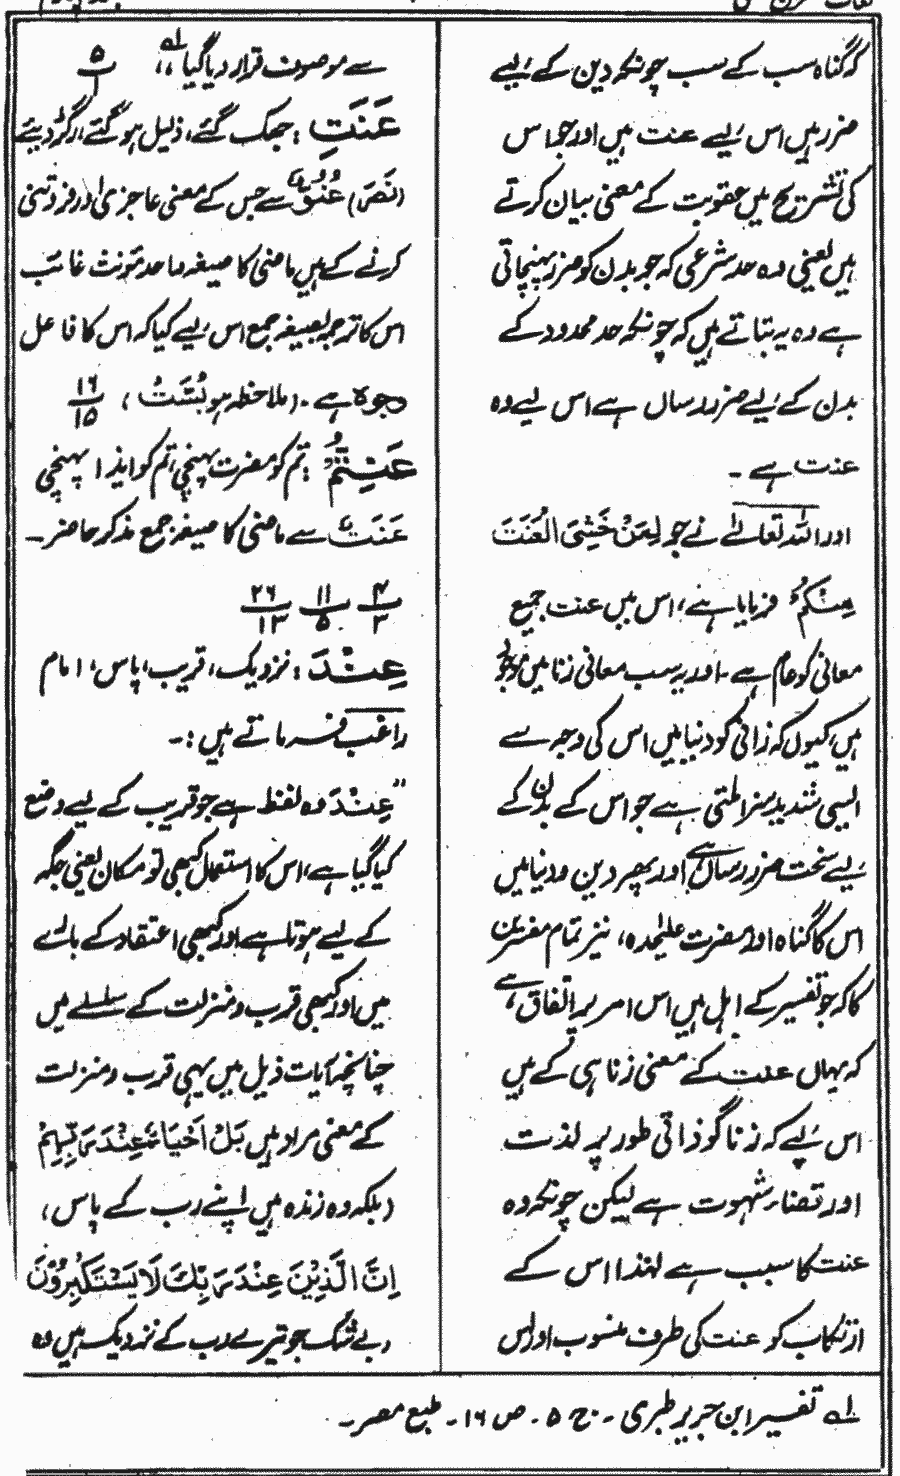 کہ گناہ سب کے سب چونکہ دین کے لیے
ضرر ہیں اس لیے عنت ہیں اور جو اس
کی تشریح میں عقوبت کے معنی بیان کرتے
ہیں یعنی وہ حد شرعی کہ جو بدن کو ضرر پہنچاتی
ہے وہ یہ بتاتے ہیں کہ چونکہ حد محدود کے
بدن کے لیے ضرر رساں ہے اس لیے وہ
عنت ہے ۔
اور اللہ تعالےٰ نے جو لِمَنْ خَشِیَ الْعَنَتَ
مِنْکُمْ فرمایا ہے، اس میں عنت جمیع
معانی کو عام ہے ۔ اور یہ سب معانی زنا میں موجود
ہیں، کیوں کہ زانی کو دنیا میں اس کی وجہ سے
ایسی شدید سزا ملتی ہے جو اس کے بدن کے
لیے سخت ضرر رساں ہے اور پھر دین و دنیا میں
اس کا گناہ اور مضرت علیٰحدہ، نیز تمام مفسرین
کا کہ جو تفسیر کے اہل ہیں اس امر پر اتفاق ہے،
کہ یہاں عنت کے معنی زنا ہی کے ہیں
اس لیے کہ زنا گو ذاتی طور پر لذت
اور قضاء شہوت ہے لیکن چونکہ وہ
عنت کا سبب ہے لہٰذا اس کے
ارتکاب کو عنت کی طرف منسوب اور اس
سے موصوف قرار دیا گیا ،، لہ ۵/۱
عَنَتِ : جھک گئے، ذلیل ہو گئے، رگڑ دیئے
(نَصَرَ) عُنُوٌّ سے جس کے معنی عاجزی اور فروتنی
کرنے کے ہیں ماضی کا صیغہ واحد مؤنث غائب
اس کا ترجمہ بصیغہ جمع اس لیے کیا کہ اس کا فاعل
وجوہ ہے ۔ (ملاحظہ ہو بُسَّتْ) ۱۶/۱۵
عَنِتُّمْ : تم کو مضرت پہنچی، تم کو ایذا پہنچی
عَنَتٌ سے ماضی کا صیغہ جمع مذکر حاضر ۔
۴/۳ ۱۱/۵ ۲۶/۱۳
عِنْدَ : نزدیک، قریب، پاس، امام
راغب فرماتے ہیں : ۔
”عِنْدَ وہ لفظ ہے جو قریب کے لیے وضع
کیا گیا ہے، اس کا استعمال کبھی تو مکان یعنی جگہ
کے لیے ہوتا ہے اور کبھی اعتقاد کے بارے
میں اور کبھی قرب و منزلت کے سلسلے میں
چنانچہ آیات ذیل میں یہی قرب و منزلت
کے معنی مراد ہیں بَلْ اَحْیَاءٌ عِنْدَ رَبِّہِمْ
(بلکہ وہ زندہ ہیں اپنے رب کے پاس)،
اِنَّ الَّذِیْنَ عِنْدَ رَبِّکَ لَا یَسْتَکْبِرُوْنَ
(بے شک جو تیرے رب کے نزدیک ہیں وہ
لہ تفسیر ابن جریر طبری ۔ ج ۵ ۔ ص ۱۶ ۔ طبع مصر ۔